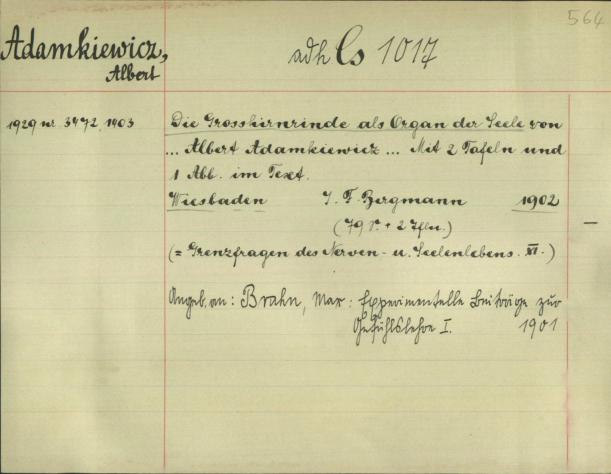 564
Adamkiewicz,
Albert
adh Cs 1017
1929 nr. 3472, 1403
Die Grosshirnrinde als Organ der Seele von
... Albert Adamkiewicz ... Mit 2 Tafeln und
1 Abb. im Text.
Wiesbaden J. F. Bergmann 1902
(79 S. + 2 Tfln.)
(= Grenzfragen des Nerven- u. Seelenlebens. XI.)
Angeb. an: Brahn, Max: Experimentelle Beiträge zur
Gefühlslehre I. 1901